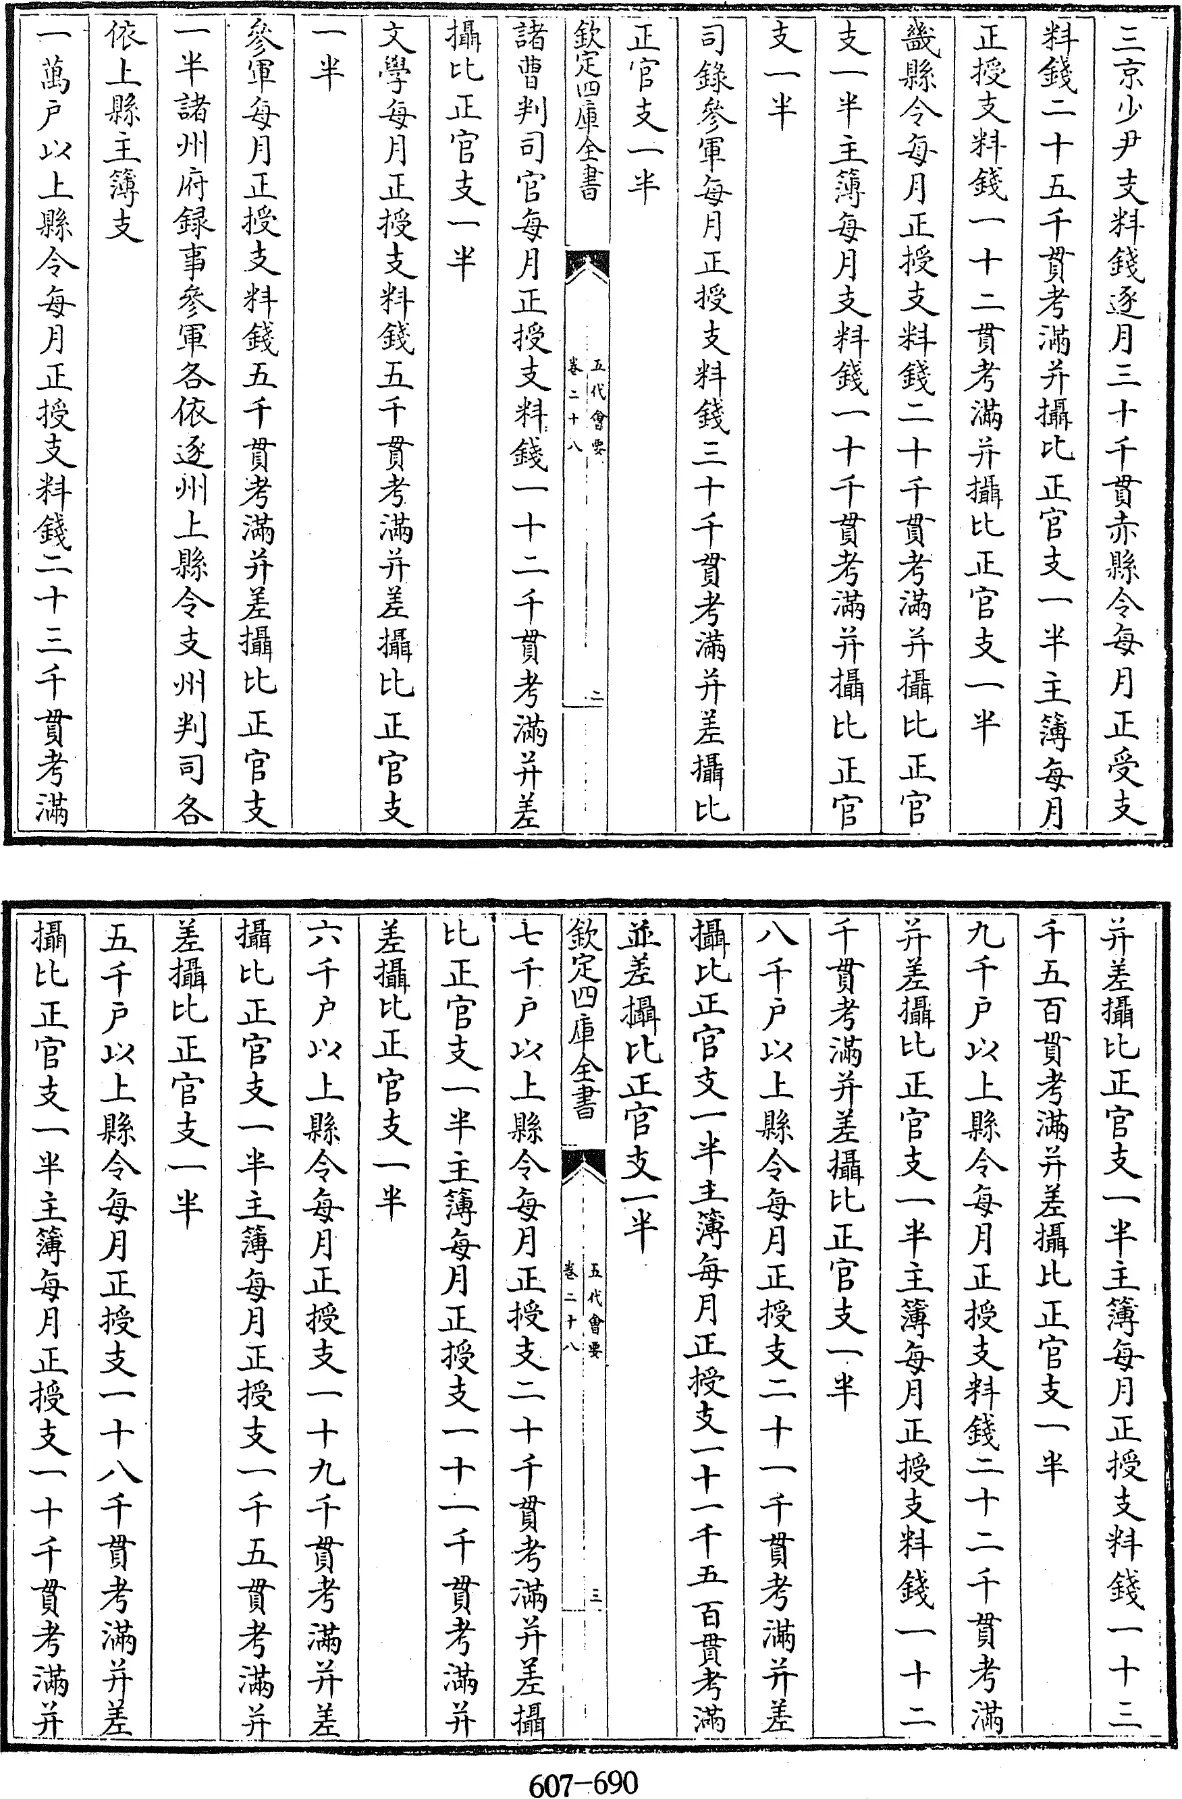 三京少尹支料錢逐月三十千貫赤縣令每月正受支
料錢二十五千貫考滿并攝比正官支一半主簿每月
正授支料錢一十二貫考滿并攝比正官支一半
畿縣令每月正授支料錢二十千貫考滿并攝比正官
支一半主簿每月支料錢一十千貫考滿并攝比正官
支一半
司錄參軍每月正授支料錢三十千貫考滿并差攝比
正官支一半
欽定四庫全書
五代會要
卷二十八
二
諸曹判司官每月正授支料錢一十二千貫考滿并差
攝比正官支一半
文學每月正授支料錢五千貫考滿并差攝比正官支
一半
參軍每月正授支料錢五千貫考滿并差攝比正官支
一半諸州府録事參軍各依逐州上縣令支州判司各
依上縣主簿支
一萬户以上縣令每月正授支料錢二十三千貫考滿
并差攝比正官支一半主簿每月正授支料錢一十三
千五百貫考滿并差攝比正官支一半
九千户以上縣令每月正授支料錢二十二千貫考滿
并差攝比正官支一半主簿每月正授支料錢一十二
千貫考滿并差攝比正官支一半
八千户以上縣令每月正授支二十一千貫考滿并差
攝比正官支一半主簿每月正授支一十一千五百貫考滿
並差攝比正官支一半
欽定四庫全書
五代會要
卷二十八
三
七千户以上縣令每月正授支二十千貫考滿并差攝
比正官支一半主簿每月正授支一十一千貫考滿并
差攝比正官支一半
六千户以上縣令每月正授支一十九千貫考滿并差
攝比正官支一半主簿每月正授支一千五貫考滿并
差攝比正官支一半
五千户以上縣令每月正授支一十八千貫考滿并差
攝比正官支一半主簿每月正授支一十千貫考滿并
607-690